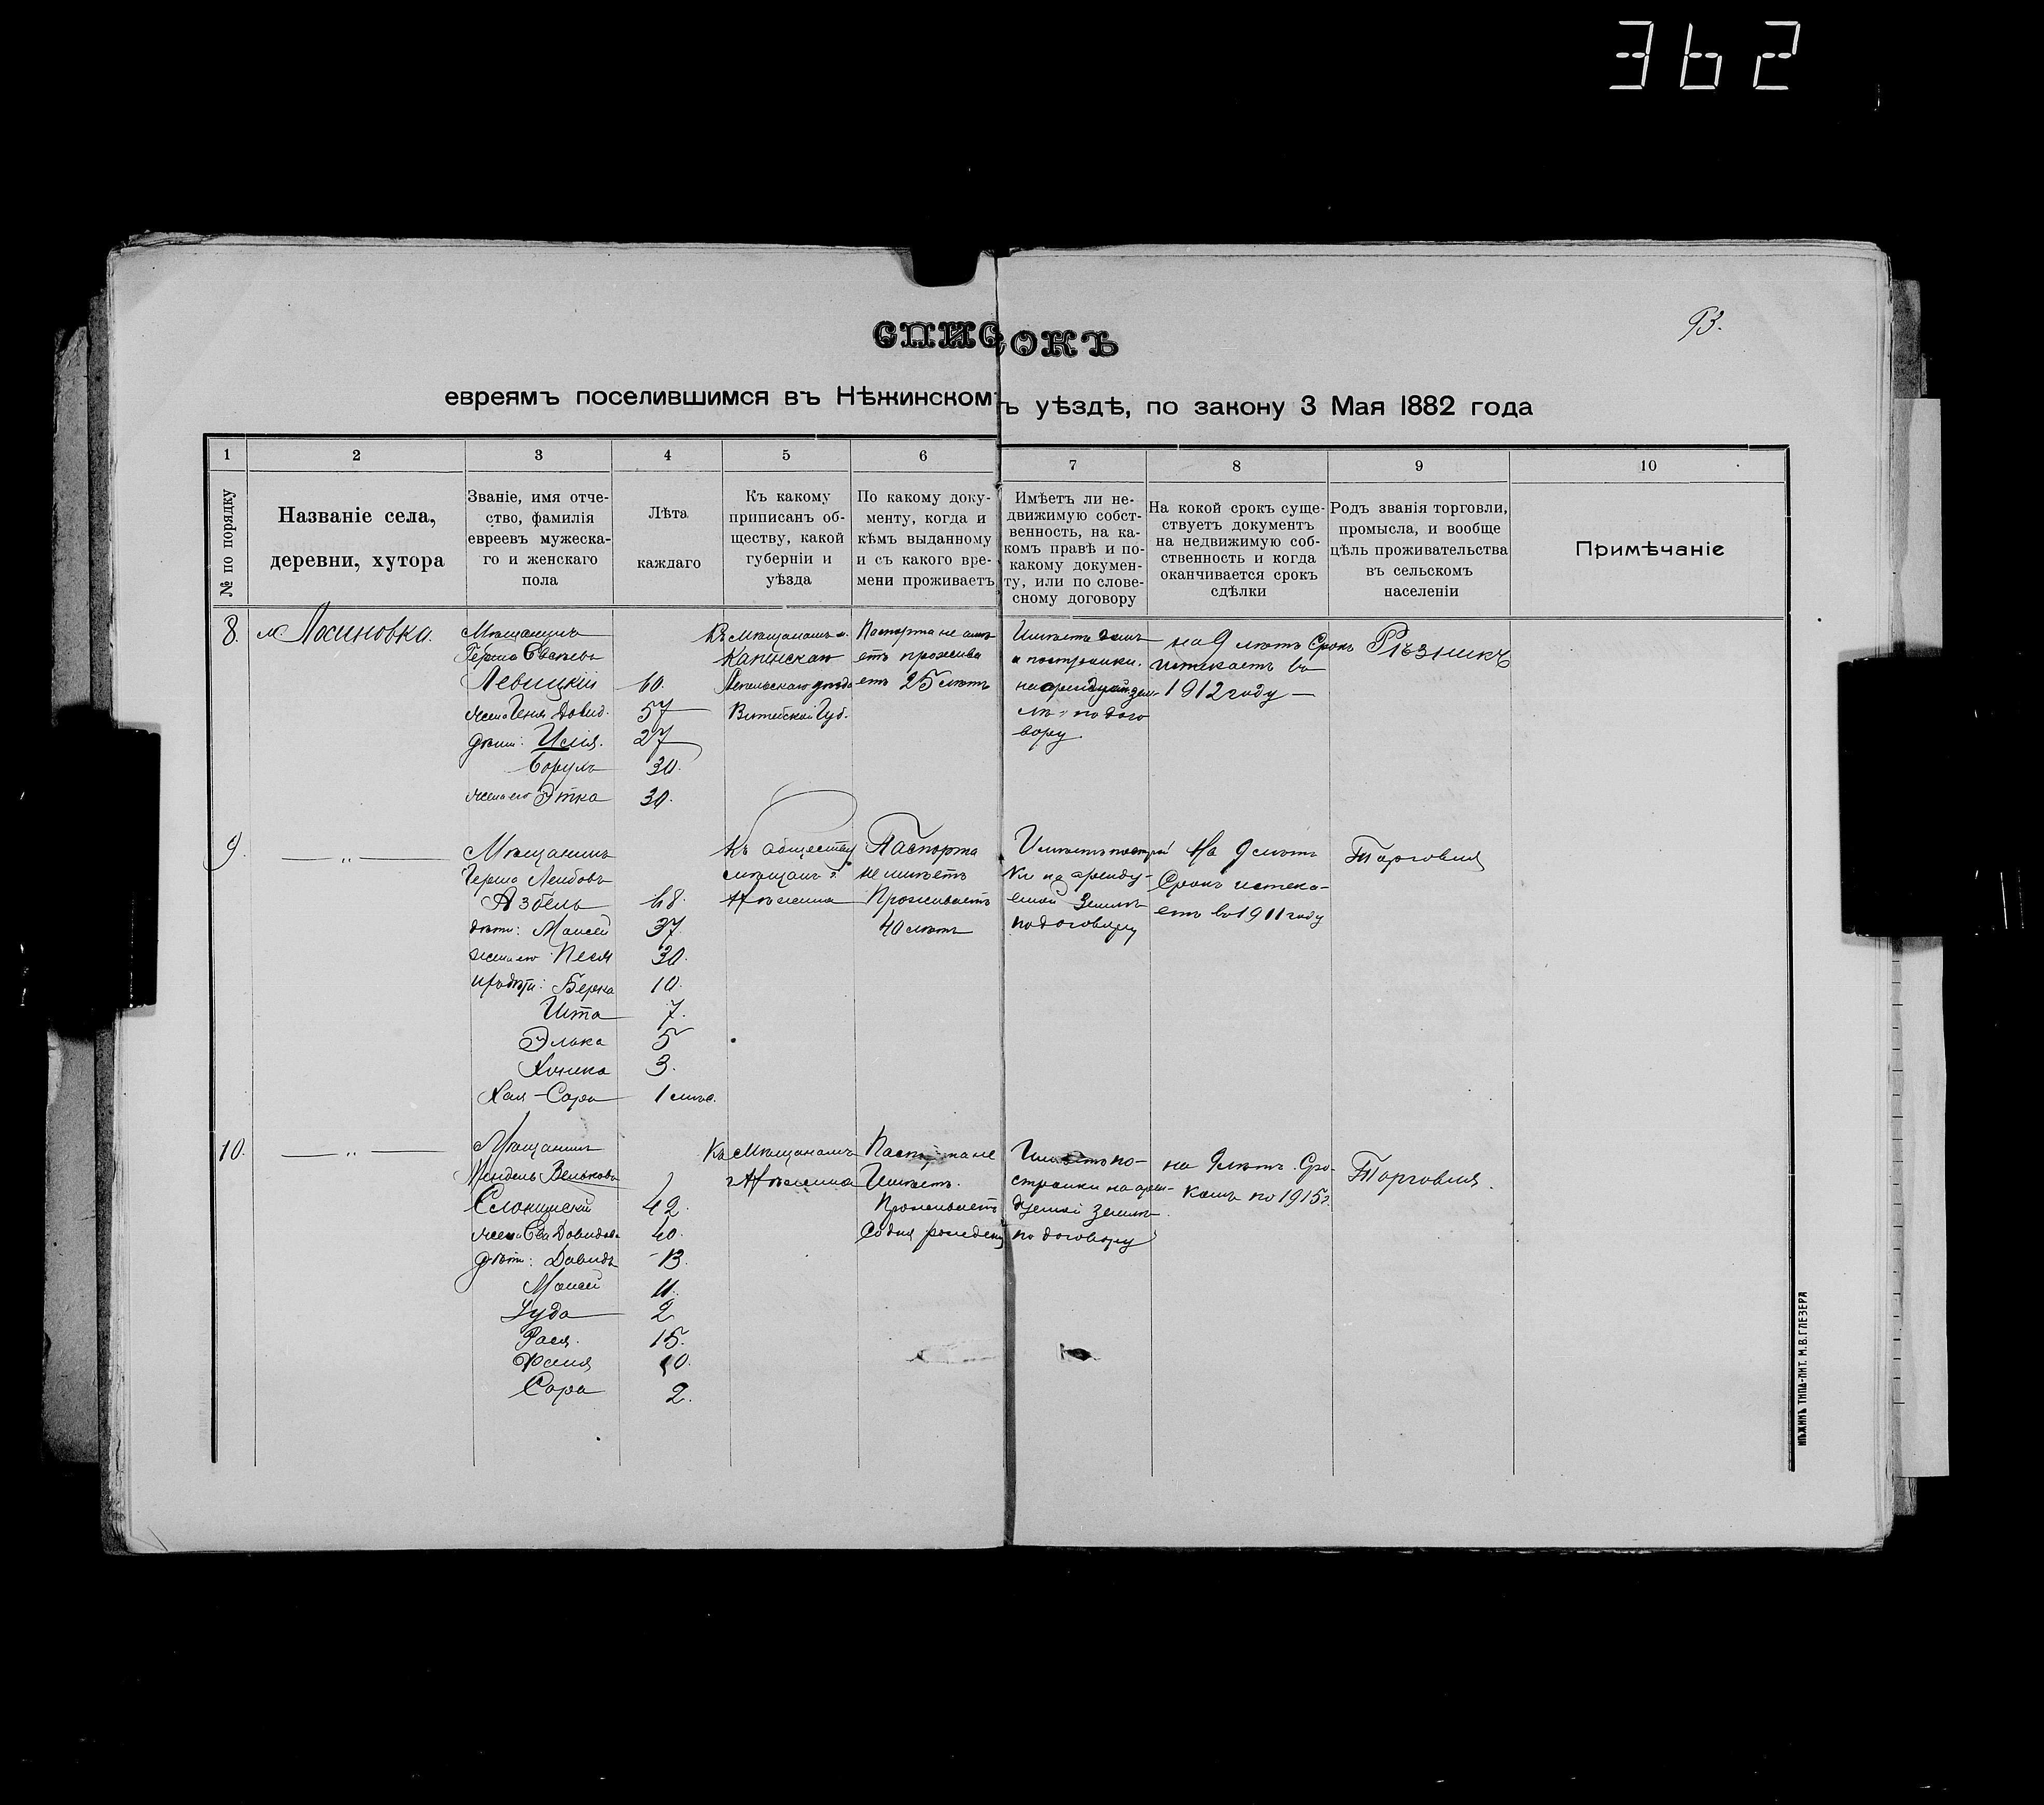 362
93.
СПИСОКЪ
евреямъ поселившимся въ Нѣжинскомъ уѣздѣ, по закону 3 Мая 1882 года
1 2 3 4 5 6 7 8 9 10
№ по порядку
Названіе села,
деревни, хутора
Званіе, имя отче-
ство, фамилія
евреевъ мужеска-
го и женскаго
пола
Лѣта
каждаго
Къ какому
приписанъ об-
ществу, какой
губерніи и
уѣзда
По какому доку-
менту, когда и
кѣмъ выданному
и съ какого вре-
мени проживаетъ
Имѣетъ ли не-
движимую собст-
венность, на ка-
комъ правѣ и по-
какому докумен-
ту, или по слове-
сному договору
На кокой срокъ суще-
ствуетъ документъ
на недвижимую соб-
ственность и когда
оканчивается срокъ
сдѣлки
Родъ званія торговли,
промысла, и вообще
цѣль проживательства
въ сельскомъ
населеніи
Примѣчаніе
8.
м Лосиновка.
Мѣщанинъ
Герша
Левицкій 60.
жена Геня Довид. 57
дѣти: Илія. 27
Борухъ 30.
жена его Этка 30.
Къ мѣщанамъ
Лепельскаго уѣзда
Витебской Губ.
Паспорта не имѣ
етъ прожива
етъ 25 лѣтъ
Имѣетъ домъ
и постройки.
на арендуемой зем
лѣ по дого
вору.
на 9 лѣтъ Срокъ
истекаетъ въ
1912 году —
Рѣзникъ
9.
— „ —
Мѣщанинъ
Герша Лейбовъ
Азбель 68.
дѣти: Моисей 37
жена его Песя 30.
ихъ дѣти: Берка 10.
Ита 7.
Элька 5
3.
Хая-Сора 1 мѣс.
Къ обществу
мѣщанъ г.
Нѣжина
Паспорта
не имѣетъ
Проживаетъ
40 лѣтъ
Имѣетъ построй
ки на аренду-
емой Землѣ
по договору
На 9 лѣтъ
Срокъ истека-
етъ въ 1911 году
Торговля
10.
— „ —
Мѣщанинъ
Мендель Вельковъ
Слонимскій 42.
жена Сва Довидова 40.
дѣти: Давидъ 13.
Моисей 11.
Іуда 2
Рася. 15.
10.
Сора 2.
Къ Мѣщанамъ
г Нѣжина
Паспорта не
Имѣетъ.
Проживаетъ
Со дня рожденія
Имѣетъ по-
стройки на арен-
дуемой Землѣ
по договору
на 9 лѣтъ. Сро-
комъ по 1915 г.
Торговля.
НѢЖИНЪ ТИПО-ЛИТ. М.В.ГЛЕЗЕРА